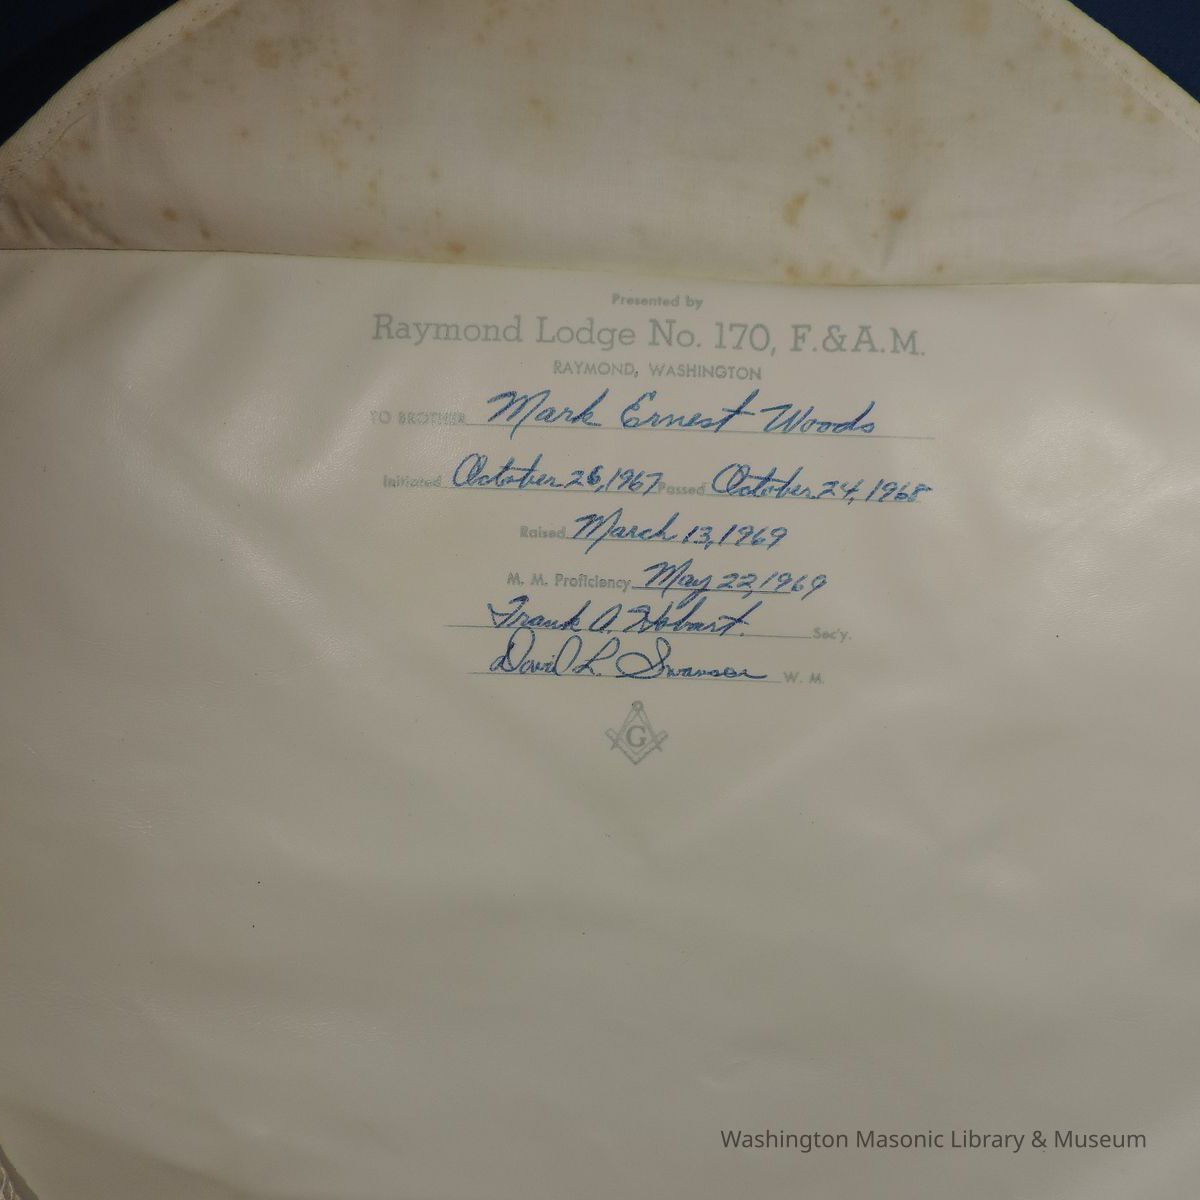 Presented by
Raymond Lodge No. 170, F. & A.M.
RAYMOND, WASHINGTON
TO BROTHER Mark Ernest Woods
Initiated October 26, 1967 Passed October 24, 1968
Raised March 13, 1969
M. M. Proficiency May 22, 1969
Frank A. Hobart. Sec'y.
David L. Swanson W. M.
G
Washington Masonic Library & Museum